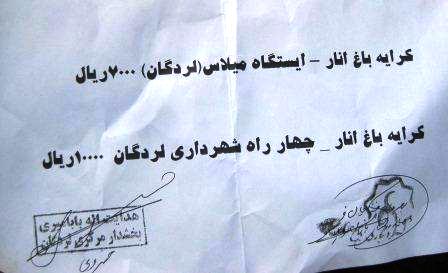 کرایه باغ انار – ایستگاه میلاس(لردگان) ۷۰۰۰ریال
کرایه باغ انار _ چهار راه شهرداری لردگان ۱۰۰۰۰ریال
هدایت اله باناصری
بخشدار مرکزی لردگان